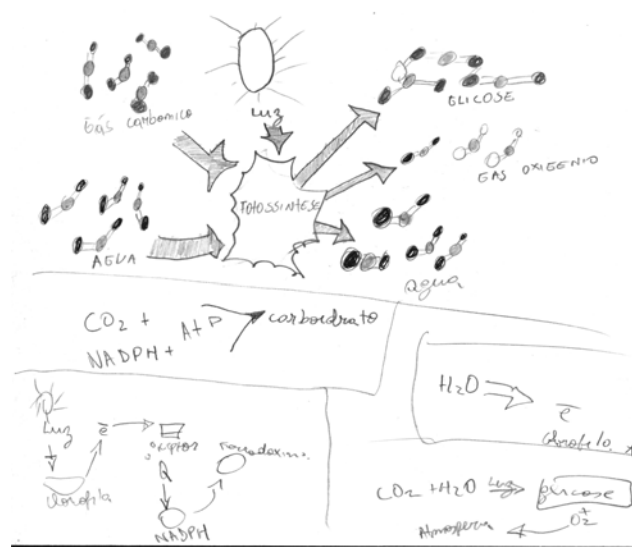 Gás carbonico
Luz
GLICOSE
GAS OXIGENIO
FOTOSSINTESE
AGUA
agua
CO2 +
NADPH + AtP
carboidrato
H2O
e-
clorofila
Luz
e-
clorofila
Q
NADPH
CO2 + H2O Luz glicose
+
O2
Atmosfera